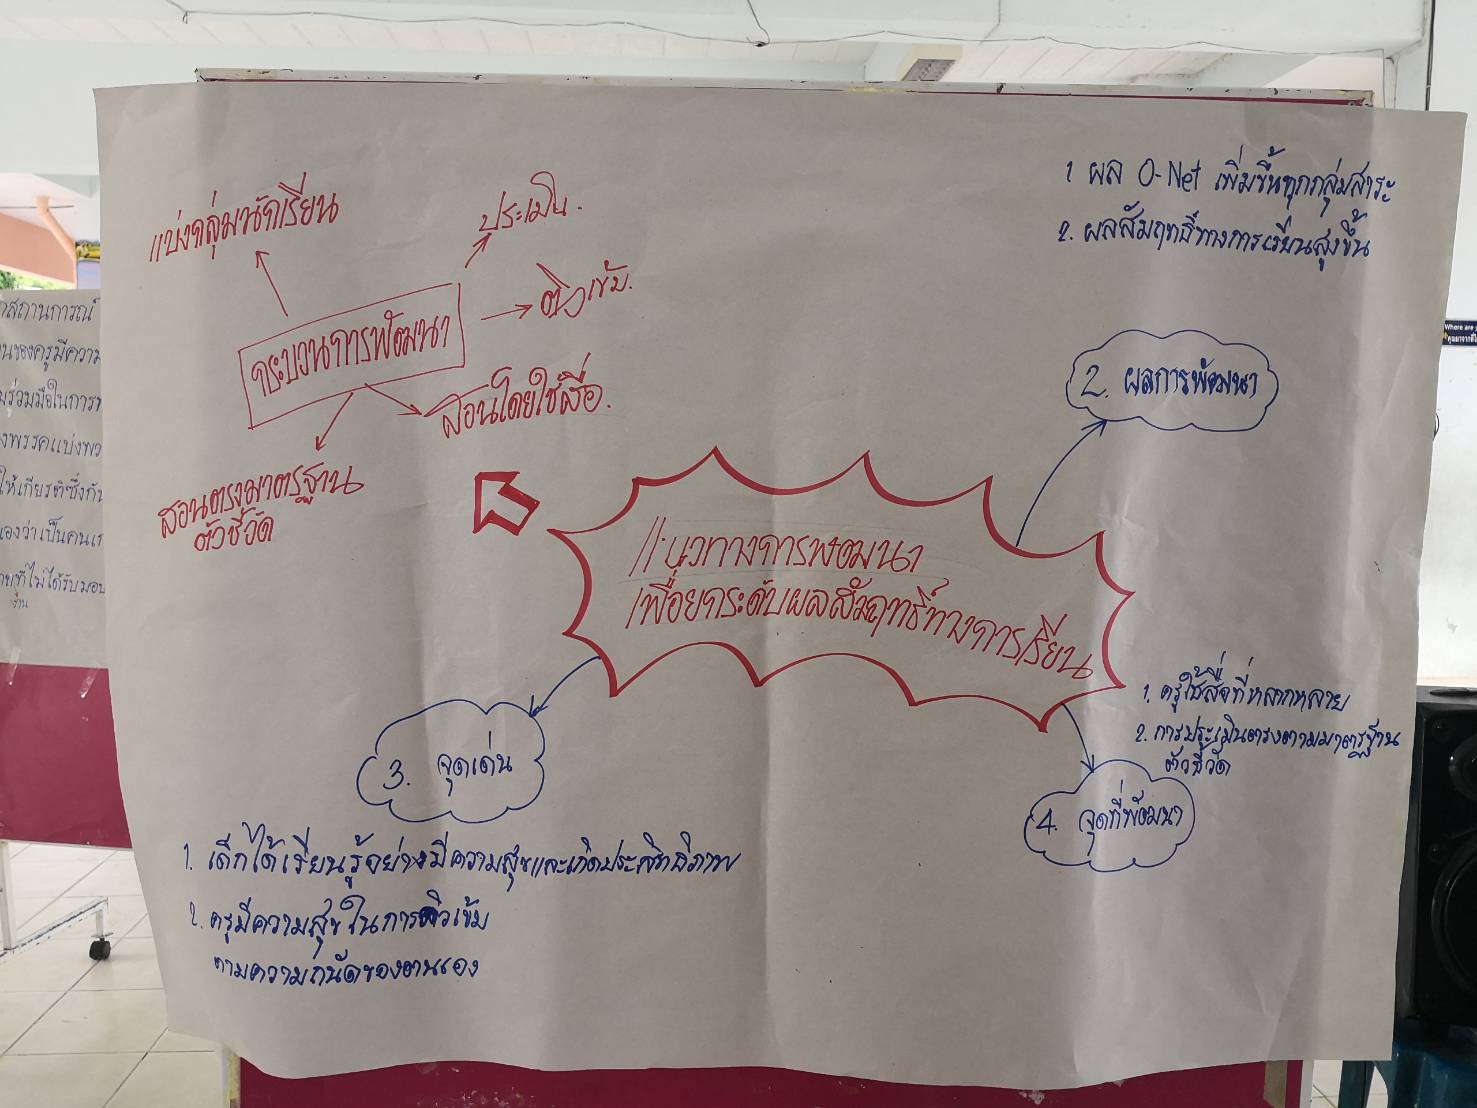 แบ่งกลุ่มนักเรียน
ประเมิน.
ติวเข้ม.
กระบวนการพัฒนา
สอนโดยใช้สื่อ.
สอนตรงมาตรฐาน
ตัวชี้วัด
1 ผล O-Net เพิ่มขึ้นทุกกลุ่มสาระ
2. ผลสัมฤทธิ์ทางการเรียนสูงขึ้น
2. ผลการพัฒนา
แนวทางการพัฒนา
เพื่อยกระดับผลสัมฤทธิ์ทางการเรียน
1. ครูใช้สื่อที่หลากหลาย
2. การประเมินตรงตามมาตรฐาน
ตัวชี้วัด
4. จุดที่พัฒนา
3. จุดเด่น
1. เด็กได้เรียนรู้อย่างมีความสุขและเกิดประสิทธิภาพ
2. ครูมีความสุขในการติวเข้ม
ตามความถนัดของตนเอง
สถานการณ์
นของครูมีความ
ร่วมมือในการ
แบ่งพวก
ให้เกียรติซึ่งกัน
องว่าเป็นคน
ที่ไม่ได้รับมอบ
งาน
Where are